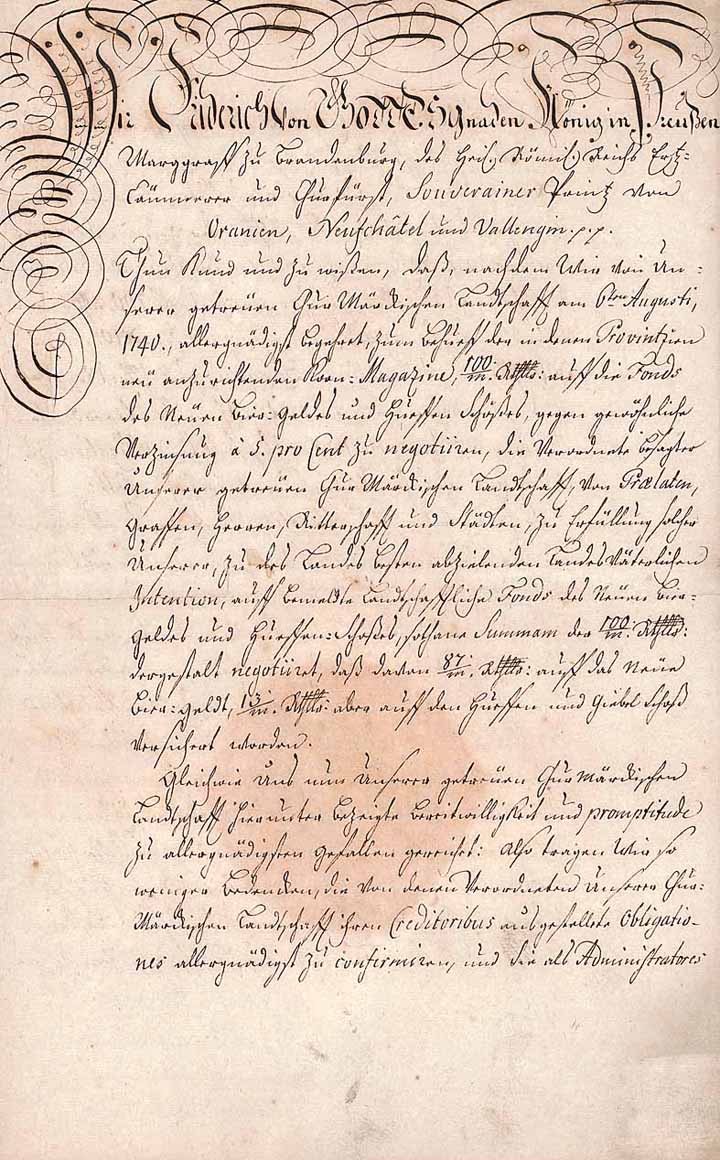 Wir Friderich von GOTTES gnaden König in Preußen
Marggraff zu Brandenburg, des Heil. Römis. Reichs Ertz-
Cämmerer und Churfürst, Souverainer Printz von
Oranien, Neufchâtel und Vallengin. p. p.
Thun Kund und zu wißen, daß, nachdem Wir von Un-
serer getreuen ChurMärckischen Landtschafft am 6ten Augusti,
1740., allergnädigst begehret, zum behueff der in denen Provintzien
neu anzurichtenden Korn-Magazine, 100/m. Rthlr: auff die Fonds
des Neuen Bier-geldes und Hueffen Schoßes, gegen gewöhnliche
Verzinsung â 5. pro Cent zu negotiiren, die Verordnete besagter
Unserer getreuen ChurMärckischen Landtschafft, von Prælaten,
Graffen, Herren, Ritterschafft und Städten, zu Erfüllung solcher
Unserer, zu des Landes besten abzielenden LandesVäterlichen
Intention, auff bemeldte Landtschafftliche Fonds des Neuen Bier-
geldes und Hueffen-Schoßes, sothane Summam der 100/m. Rthlr:
dergestalt negotiiret, daß davon 87/m. Rthlr: auff das Neue
Bier-geldt, 13/m. Rthlr: aber auff den Hueffen und Giebel Schoß
versichert worden.
Gleichwie Uns nun Unserer getreuen ChurMärckischen
Landtschafft hierunter bezeigte bereitwilligkeit und promptitude
zu allergnädigsten gefallen gereichet: Also tragen Wir so
weniger bedencken, die von denen Verordneten Unserer Chur-
Märckischen Landtschafft ihren Creditoribus ausgestellte Obligatio-
nes allergnädigst zu confirmiren, und sie als Administratores